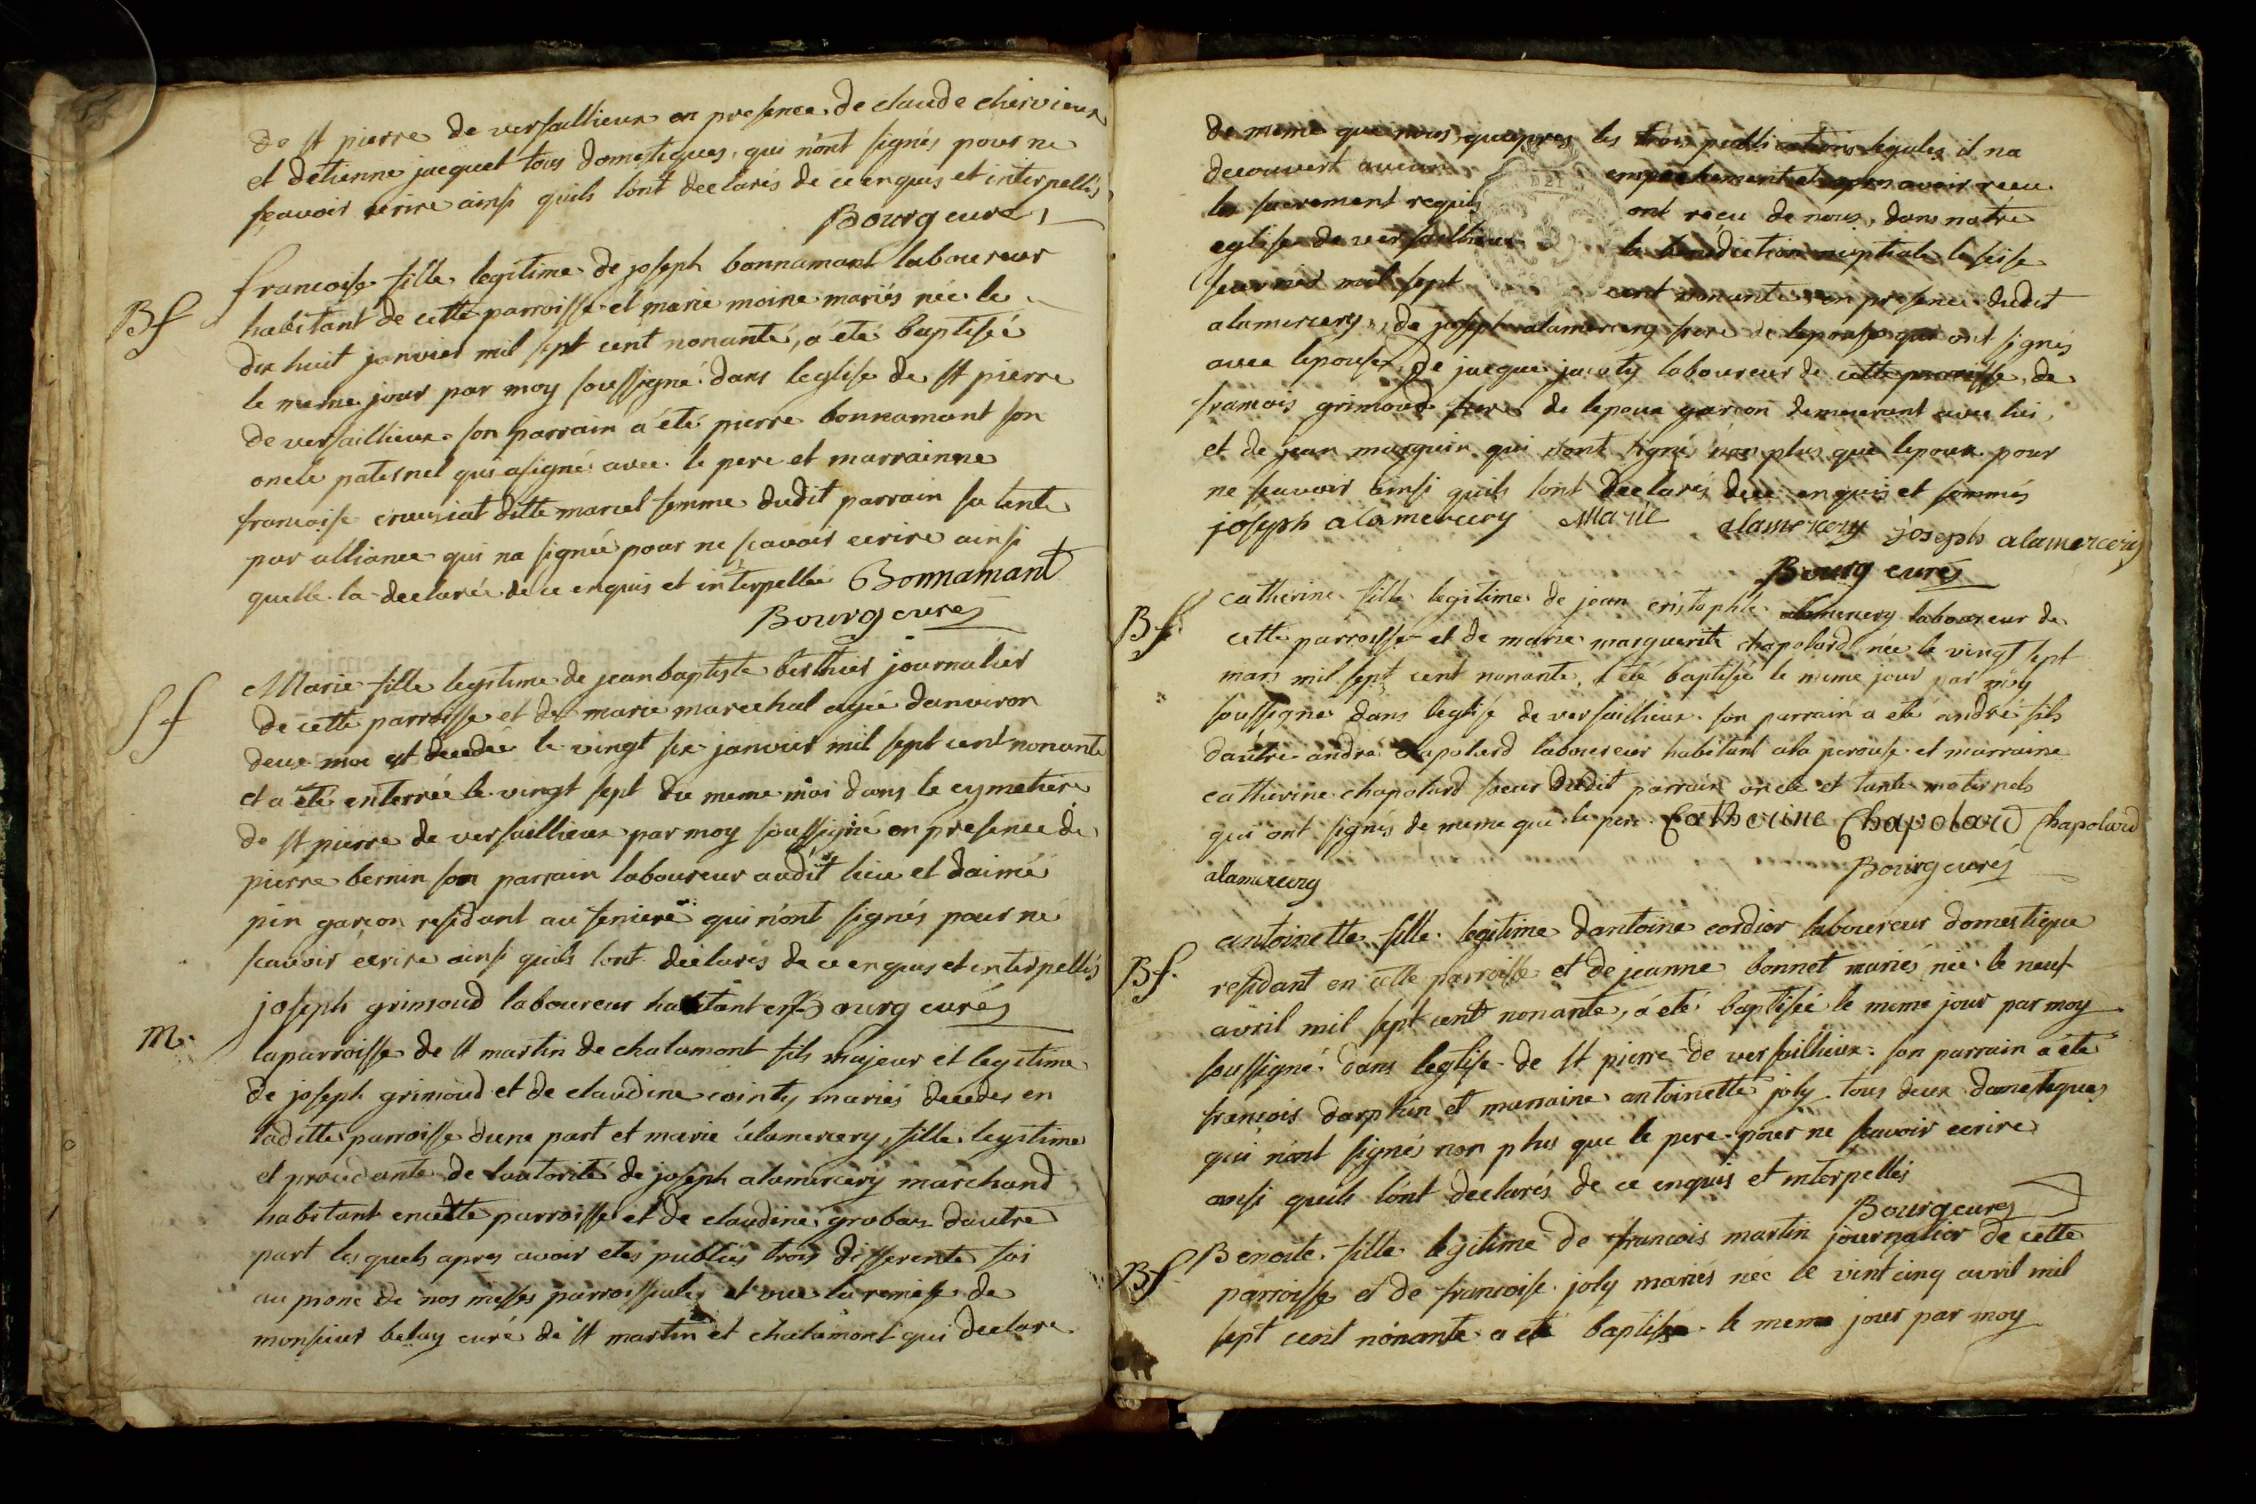 de st pierre de versaillieux en presence de claude chervieux
et detienne jacquet tous domestiques, qui n'ont signés pour ne
sçavoir ecrire ainsi quils l'ont declarés de ce enquis et interpellés
Bourg curé
francoise fille legitime de joseph bonnamant laboureur
Bf
habitant de cette parroisse et marie moine mariés née le
dix huit janvier mil sept cent nonante, a été baptisée
le meme jour par moy soussigné dans leglise de st pierre
de versaillieux son parrain a été pierre bonnamant son
oncle paternel qui a signé avec le pere et marrainne
francoise cruisiat ditte marcel femme dudit parrain sa tente
par alliance qui na signée pour ne scavoir ecrire ainsi
quelle la declarée de ce enquis et interpellée Bonnamant
Bourg curé
Marie fille legitime de jean baptiste berthier journalier
Sf
de cette parroisse et de marie marechal agée danviron
deux moi est decedée le vingt six janvier mil sept cent nonante
et a été enterrée le vingt sept du meme moi dans le cymetiere
de st pierre de versaillieux par moy soussigné en presence de
pierre bernin son parrain laboureur audit lieu et daimé
pin garcon residant au qui n'ont signés pour ne
scavoir ecrire ainsi quils l'ont declarés de ce enquis et interpellés
joseph grimoud laboureur habitant en Bourg curé
M.
la parroisse de st martin de chalamont fils majeur et legitime
de joseph grimoud et de claudine cointy mariés decedes en
ladite parroisse dune part et marie alamercery, fille legitime
et procedante de lautorité de joseph alamercery marchand
habitant en cette parroisse et de claudine grobas dautre
part les quels apres avoir etes publiés trois differente fois
au prone de nos messes parroissiales et vue la remise de
monsieur belay curé de st martin et chalamont qui declare
de meme que nous, quapres les trois publications legales il na
decouvert aucun empechement et apres avoir recu
les sacrement requis ont recu de nous, dans notre
eglise de versaillieux la benediction nuptiale le seise
fevrier mil sept cent nonante en presence dudit
alamercery, de joseph alamercery frere de lepouse qui ont signés
avec lepouse, de jacque jacoty laboureur de cette parroisse, de
francois grimoud frere de lepoux garcon demeurant avec lui,
et de jean marguin qui n'ont signé non plus que lepoux pour
ne scavoir ainsi quils l'ont declarés de ce enquis et sommés
joseph alamercery Marie alamercery joseph alamercery
Bourg curé
catherine fille legitime de jean cristophle alamercery laboureur de
Bf.
cette parroisse et de marie marguerite chapolard née le vingt sept
mars mil sept cent nonante, a été baptisée le meme jour par moy
soussigné dans leglise de versaillieux. son parrain a été andré fils
dautre andré chapolard laboureur habitant a la perouse et marraine
catherine chapolard soeur dudit parrain oncle et tante maternels
qui ont signés de meme que le pere. Catherine Chapolard Chapolard
alamercery Bourg curé
antoinette fille legitime dantoine cordier laboureur domestique
Bf.
residant en cette parroisse et de jeanne bonnet mariés née le neuf
avril mil sept cent nonante, a été baptisée le meme jour par moy
soussigné dans leglise de st pierre de versaillieux. son parrain a été
françois darphin et marraine antoinette joly tous deux domestiques
qui n'ont signés non plus que le pere pour ne sçavoir ecrire
ainsi quils l'ont declarés de ce enquis et interpellés
Bourg curé
Benoite fille legitime de francois martin journalier de cette
Bf
parroisse et de francoise joly mariés née le vint cinq avril mil
sept cent nonante a été baptisée le meme jour par moy